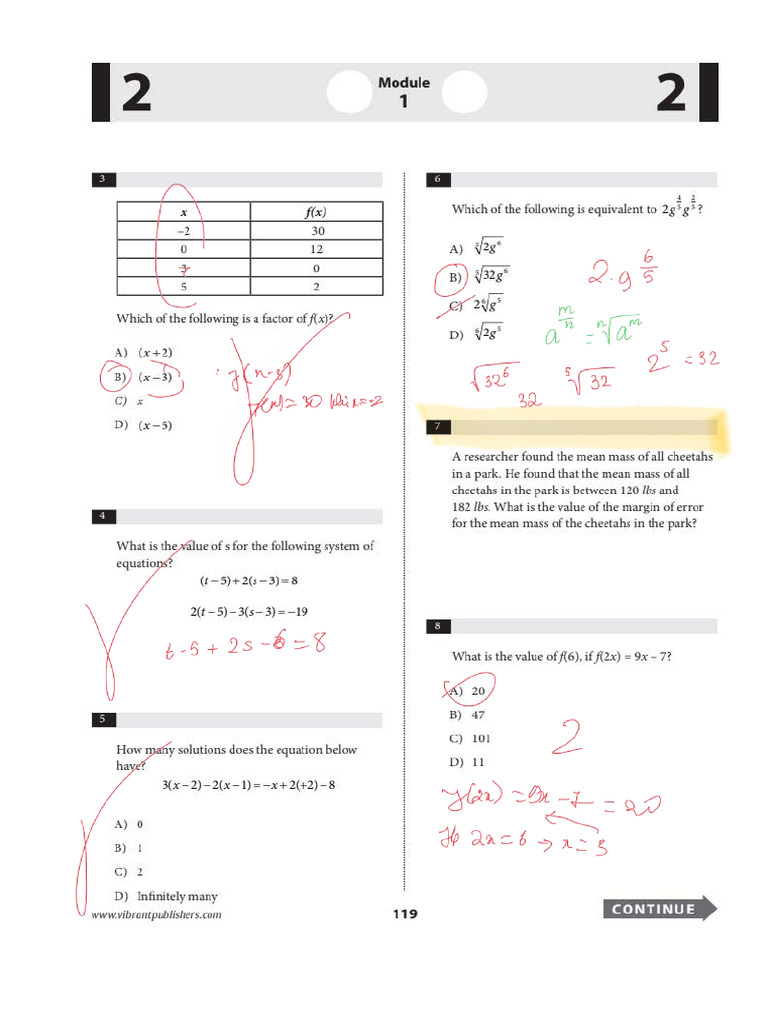 2
Module
1
2
3
x f(x)
–2 30
0 12
3 0
5 2
Which of the following is a factor of f(x)?
A) (x + 2)
B) (x – 3)
C) x
D) (x – 5)
4
What is the value of s for the following system of
equations?
(t – 5) + 2(s – 3) = 8
2(t – 5) – 3(s – 3) = –19
t - 5 + 2s - 6 = 8
5
How many solutions does the equation below
have?
3(x – 2) – 2(x – 1) = –x + 2(+2) – 8
A) 0
B) 1
C) 2
D) Infinitely many
www.vibrantpublishers.com
6
Which of the following is equivalent to 2g^{4/5}g^{2/5}?
A) ⁵√2g⁶
B) ⁵√32g⁶
C) 2⁶√g⁵
D) ⁶√2g⁵
2 · g^{6/5}
a^{m/n} = ⁿ√a^m
√32⁶ ⁵√32 2⁵ = 32
32
7
A researcher found the mean mass of all cheetahs
in a park. He found that the mean mass of all
cheetahs in the park is between 120 lbs and
182 lbs. What is the value of the margin of error
for the mean mass of the cheetahs in the park?
8
What is the value of f(6), if f(2x) = 9x – 7?
A) 20
B) 47
C) 101
D) 11
2
f(2x) = 9x - 7 = 20
2x = 6 → x = 3
119
CONTINUE